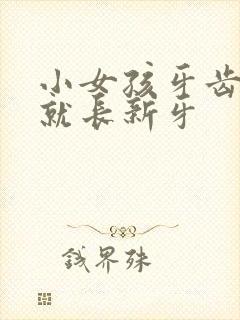 小女孩牙齿
就长新牙
钱界殊